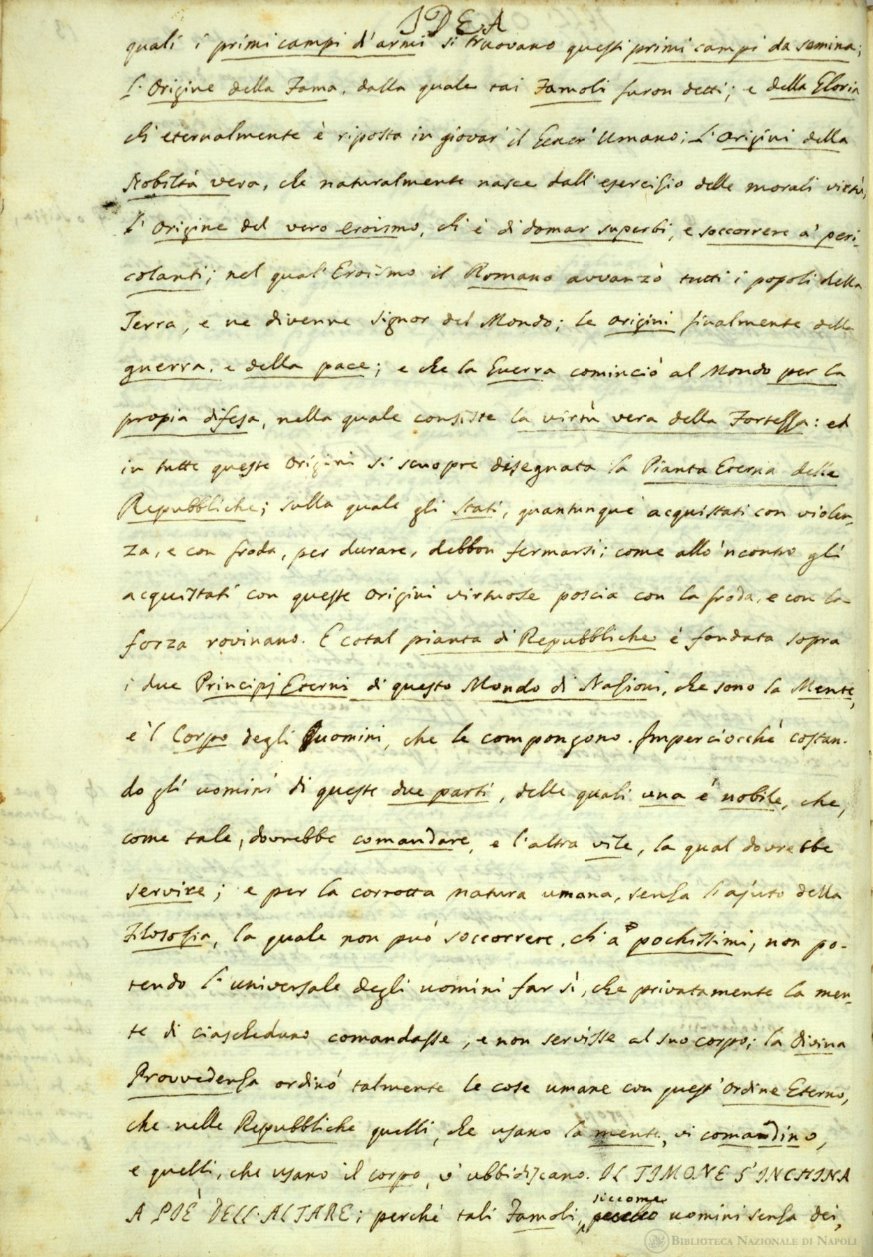 IDEA
quali i primi campi d'armi si truovano questi primi campi da semina;
L'Origine della Fama, dalla quale tai Famoli furon detti; e della Gloria
ch'eternalmente è riposta in giovar' il Gener' Umano; L'Origini della
Nobiltà vera, che naturalmente nasce dall'esercizio delle morali virtù,
L'Origine del vero eroismo, ch'è di domar superbi, e soccorrere a' peri-
colanti; nel qual'Eroismo il Romano avvanzò tutti i popoli della
Terra, e ne divenne Signor del Mondo; le origini finalmente della
guerra, e della pace; e che la Guerra cominciò al Mondo per la
propia difesa, nella quale consiste la virtù vera della Fortezza: ed
in tutte queste Origini si scuopre disegnata la Pianta Eterna delle
Repubbliche; sulla quale gli Stati, quantunque acquistati con violen-
za, e con froda, per durare, debbon fermarsi; come allo 'ncontro gli
acquistati con queste Origini virtuose poscia con la froda, e con la
forza rovinano. E cotal pianta di Repubbliche è fondata sopra
i due Principj Eterni di questo Mondo di Nazioni, che sono la Mente,
e 'l Corpo degli uomini, che le compongono. Imperciocchè costan-
do gli uomini di queste due parti, delle quali una è nobile, che,
come tale, dovrebbe comandare, e l'altra vile, la qual dovrebbe
servire; e per la corrotta natura umana, senza l'ajuto della
Filosofia, la quale non può soccorrere, ch'a pochissimi, non po-
tendo l'universale degli uomini far sì, che privatamente la men-
te di ciascheduno comandasse, e non servisse al suo corpo; la Divina
Provvedenza ordinò talmente le cose umane con quest'Ordine Eterno,
che nelle Repubbliche quelli, che usano la mente, vi comandino,
e quelli, che usano il corpo, v'ubbidiscano. IL TIMONE S'INCHINA
A PIÈ DELL'ALTARE; perchè tali Famoli, siccome uomini senza dei,
BIBLIOTECA NAZIONALE DI NAPOLI